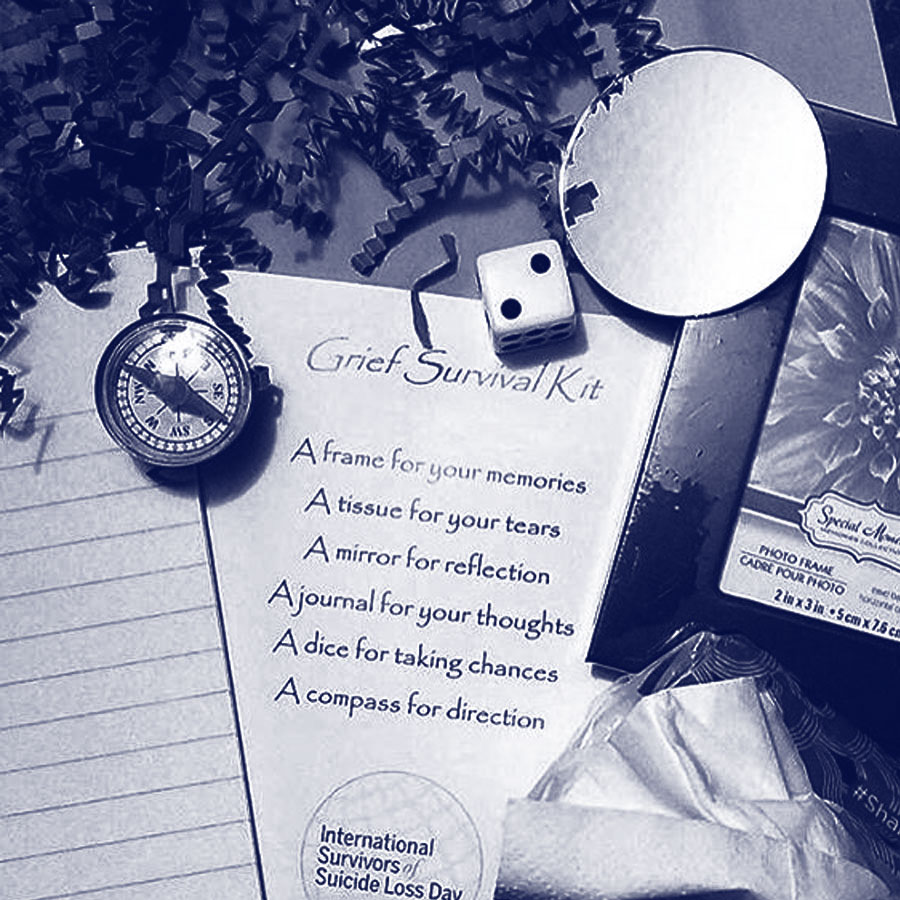 Grief Survival Kit
A frame for your memories
A tissue for your tears
A mirror for reflection
A journal for your thoughts
A dice for taking chances
A compass for direction
International
Survivors of
Suicide Loss Day
Special
PHOTO FRAME
CADRE POUR PHOTO
2 in x 3 in • 5 cm x 7.6 cm
W
SW
SE